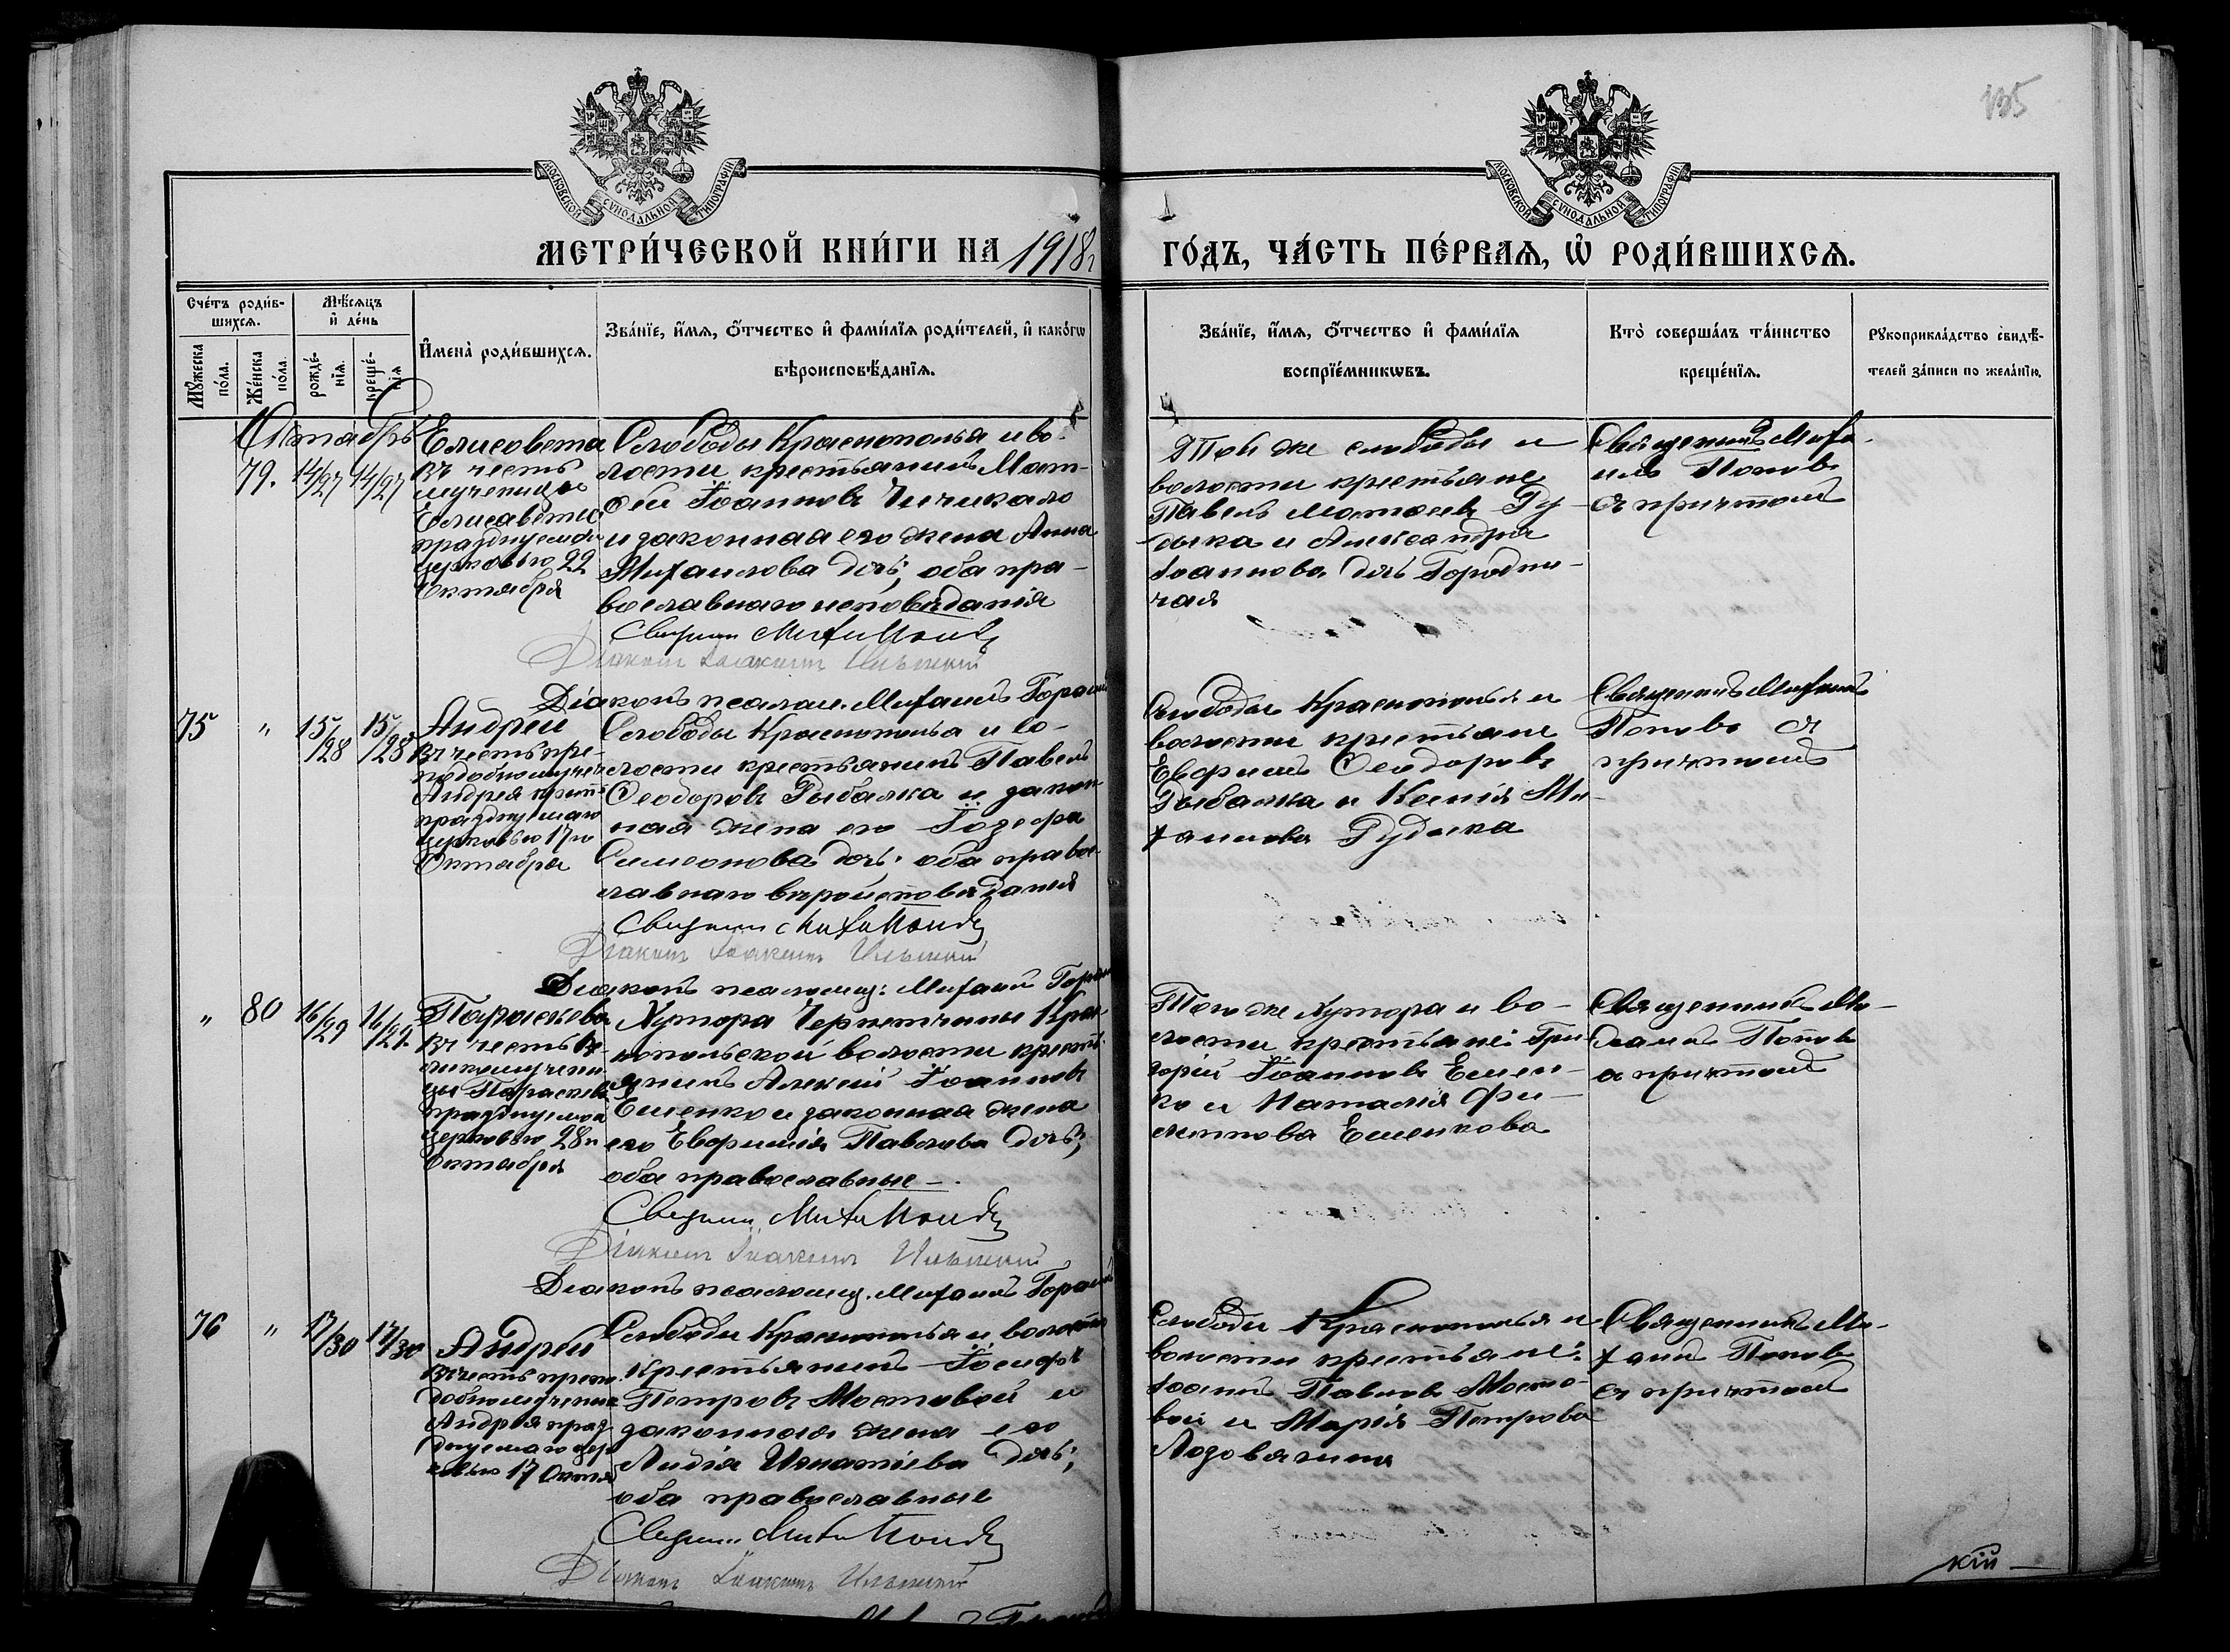 135
МОСКОВСКОЙ СѴНОДАЛЬНОЙ ТИПОГРАФІИ
МОСКОВСКОЙ СѴНОДАЛЬНОЙ ТИПОГРАФІИ
МЕТРИ́ЧЕСКОЙ КНИ́ГИ НА 1918 г
ГО́ДЪ, ЧА́СТЬ ПЕ́РВАЯ, Ѽ РОДИ́ВШИХСЯ.
Сче́тъ роди́в-
шихся.
Мꙋжеска по́ла.
Же́нска по́ла.
Мѣ́сяцъ
и҆ де́нь
рожде́-
нїя.
креще́-
нїя
И҆мена̀ роди́вшихся.
Зва́нїе, и҆́мя, ѻ҆́тчество и҆ фами́лїя роди́телей, и҆ како́гѡ
вѣроисповѣ́данїя.
Зва́нїе, и҆́мя, ѻ҆́тчество и҆ фами́лїя
воспрїе́мникѡвъ.
Кто̀ соверша́лъ та́инство
креще́нїя.
Рꙋкоприкла́дство свидѣ́-
телей за́писи по жела́нїю.
Октябрь
79. 14/27 14/27
Елисавета
въ честь
мученицы
Елисаветы
празднуемой
церковью 22
Октября
Слободы Краснополья и во-
лости крестьянинъ Мат-
ѳей Іоанновъ Чичикало
и законная его жена Анна
Михаилова дочь, оба пра-
вославнаго исповѣданія
Священ. Миха Поповъ
Діаконъ Іоакимъ Ильинскій
Діаконъ псалом. Михаилъ Гораинъ
Той же слободы и
волости крестьяне
Павелъ Матѳеевъ Ру-
дыка и Александра
Іоаннова дочь Городни-
чая
Священникъ Миха-
илъ Поповъ
съ причтомъ
75 " 15/28 15/28
Андрей
въ честь пре-
подобномучен
Андрея крит.
празднуемаго
церковью 17го
Октября
Слободы Краснополья и во-
лости крестьянинъ Павелъ
Ѳеодоровъ Рыбалка и закон-
ная жена его Іозефа
Симеонова дочь; оба правос-
лавнаго вѣроисповѣданія
Священ. Миха Поповъ
Діаконъ Іоакимъ Ильинскій
Діаконъ псаломщ. Михаилъ Гораинъ
Слободы Краснополья и
волости крестьяне
Евфимъ Ѳеодоровъ
Рыбалка и Ксенія Ми-
хаилова Рудыка
Священникъ Михаилъ
Поповъ съ
причтомъ
" 80 16/29 16/29
Параскева
въ честь ве-
ликомучени
цы Параскевы
празднуемой
церковью 28го
Октября
Хутора Чернетчины Крас-
нопольской волости кресть-
янинъ Алексій Іоанновъ
Ешенко и законная жена
его Евфимія Павлова дочь;
оба православные
Священ. Миха Поповъ
Діаконъ Іоакимъ Ильинскій
Діаконъ псаломщ. Михаилъ Гораинъ
Того же хутора и во-
лости крестьяне: Гри-
горій Іоанновъ Ешен-
ко и Наталія Фи-
липпова Ешенкова
Священникъ Ми-
хаилъ Поповъ
съ причтомъ
76 " 17/30 17/30
Андрей
въ честь препо
добномученика
Андрея праз-
днуемаго цер-
ковью 17 Октя
Слободы Краснополья и волости
крестьянинъ Іосифъ
Петровъ Мостовой и
законная жена его
Лидія Игнатіева дочь;
оба православные
Священ. Миха Поповъ
Діаконъ Іоакимъ Ильинскій
Слободы Краснополья и
волости крестьяне:
Іоаннъ Павловъ Мосто-
вой и Марія Петрова
Лозовягина
Священникъ Ми-
хаилъ Поповъ
съ причтомъ
кій